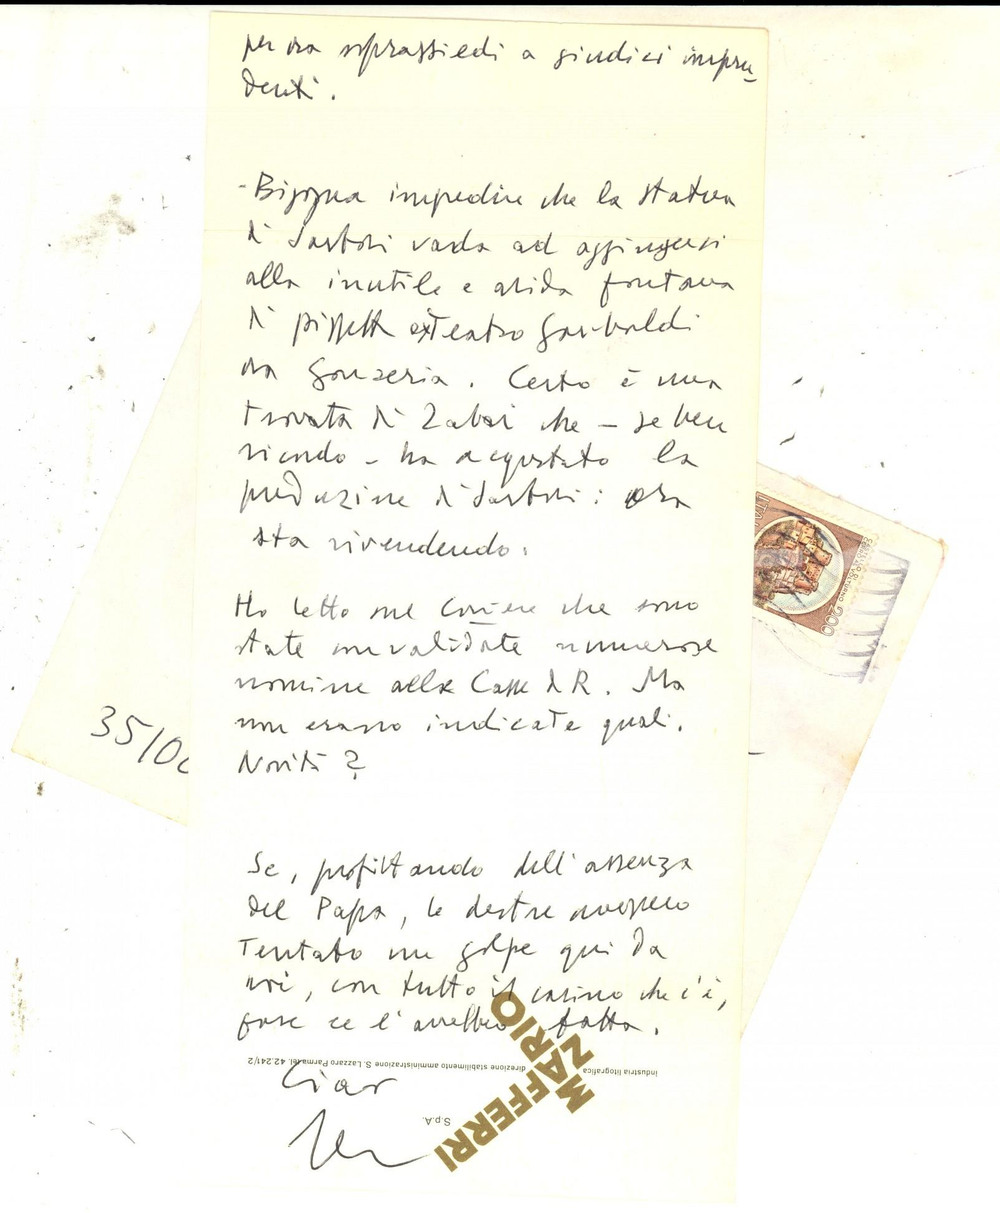 per ora soprassiedi a giudizi impru_
denti.
- Bisogna impedire che la statua
di Sartori vada ad aggiungersi
alla inutile e arida fontana
di ex Teatro Garibaldi
ora Gonzeria. Certo è una
trovata di Zabai che – se ben
ricordo – ha acquistato la
produzione di Sartori: ora
sta rivendendo.
Ho letto sul Corriere che sono
state invalidate numerose
nomine alle Casse di R. Ma
non erano indicate quali.
Novità?
Se, profittando dell'assenza
del Papa, le destre avessero
tentato un golpe qui da
noi, con tutto il casino che c'è,
forse ce l'avrebbero fatta.
Ciao
industria litografica
direzione stabilimento amministrazione S. Lazzaro Parma tel. 42.241/2
MARIO
MAFFERRI
S.p.A.
35100
ITALIA
200